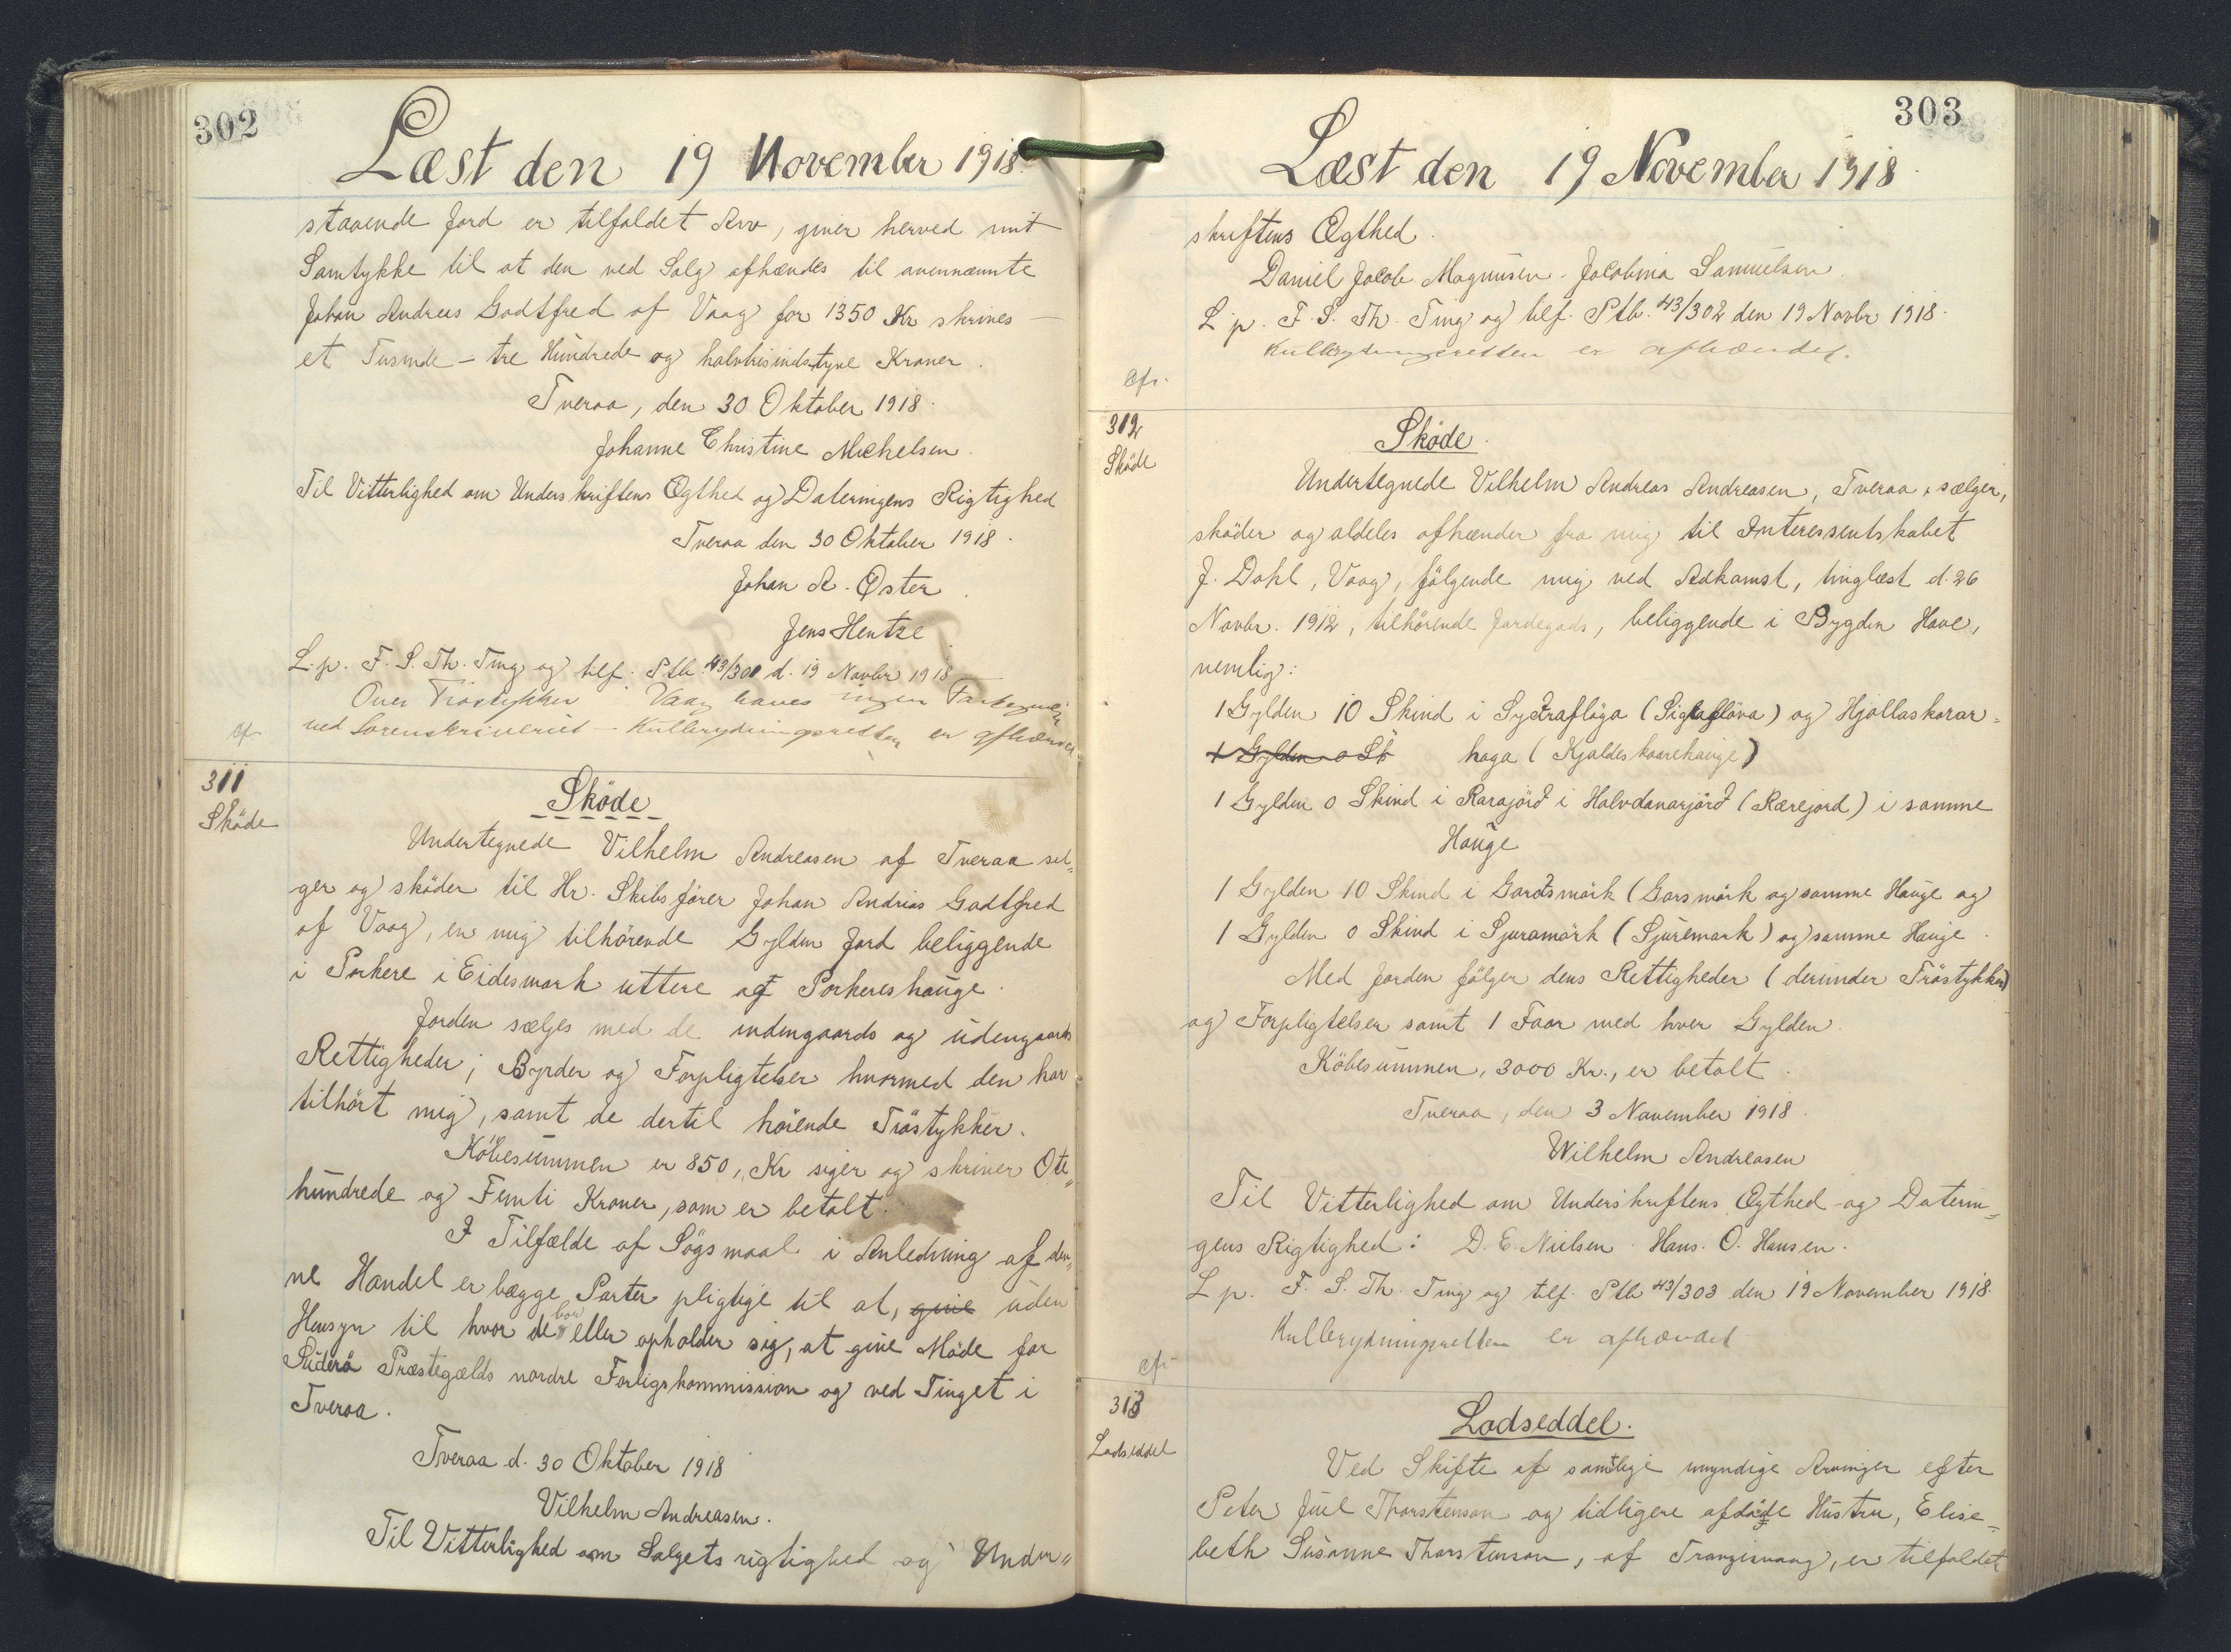 302
Læst den 19 November 1918
staaende Jord er tilfaldet Arv, giver herved mit
Samtykke til at den ved Salg afhændes til avennævnte
Johan Andreas Godtfred af Vaag for 1350 Kr skrives
et Tusinde - tre Hundrede og halvtrisindstyve Kroner.
Tveraa, den 30 Oktober 1918.
Johanne Christine Michelsen.
Til Vitterlighed om Underskriftens Ægthed og Dateringens Rigtighed
Tveraa den 30 Oktober 1918.
Johan A. Øster.
Jens Hentze
L. p. F. S. Th. Ting og tilf. Ptb. 43/301 d. 19 Novbr 1918
Over Tröstykker i Vaag haves ingen
ved Sorenskriveriet - Kulbrydningsretten er afhændet
cfr
311
Sköde
Sköde
Undertegnede Vilhelm Andreasen af Tveraa sæl„
ger og sköder til Hr. Skibsförer Johan Andrias Godtfred
af Vaag, en mig tilhörende Gylden Jord beliggende
i Porkere i Eidesmark uttere af Porkereshauge.
Jorden sælges med de indengaards og udengaards
Rettigheder; Byrder og Forpligtelser hvormed den har
tilhört mig, samt de dertil hörende Tröstykker.
Köbesummen er 850, Kr siger og skriver Ote„
hundrede og Femti Kroner, som er betalt.
I Tilfælde af Sögsmaal i Anledning af den„
ne Handel er bægge Parter pligtige til at, give uden
Hensyn til hvor de bor eller opholder sig, at give Möde for
Suderö Præstegælds nordre Forligskommission og ved Tinget i
Tveraa.
Tveraa d. 30 Oktober 1918
Vilhelm Andreasen.
Til Vitterlighed om Salgets rigtighed og Under„
303
Læst den 19 November 1918.
skriftens Ægthed.
Daniel Jacob Magnusen. Jacobina Samuelsen.
L. p. F. S. Th. Ting og tilf. Ptb. 43/302 den 19 Novbr 1918.
Kulbrydningsretten er afhændet.
cfr.
312
Sköde
Sköde.
Undertegnede Vilhelm Andreas Andreasen, Tveraa, sælger,
sköder og aldeles afhænder fra mig til Interessentskabet
J. Dahl, Vaag, fölgende mig ved Adkomst, tinglæst d. 26
Novbr. 1912, tilhörende Jordegods, beliggende i Bygden Hove,
nemlig:
1 Gylden 10 Skind i Sydraflöga (Sigtaflöva) og Hjallaskorar=
1 Gylden 0 Sk haga (Kjaldeskaarehauge)
1 Gylden 0 Skind i Rarajörð i Halvdanarjörð (Rærejord) i samme
Hauge
1 Gylden 10 Skind i Garðsmörk (Garsmörk og samme Hauge og
1 Gylden 0 Skind i Sjuramörk (Sjuremark) og samme Hauge.
Med Jorden fölger dens Rettigheder (derunder Tröstykker)
og Forpligtelser samt 1 Faar med hver Gylden.
Köbesummen, 3000 Kr., er betalt.
Tveraa, den 3 November 1918.
Wilhelm Andreasen
Til Vitterlighed om Underskriftens Ægthed og Daterin„
gens Rigtighed: D. E. Nielsen. Hans. O. Hansen.
L p. F. S. Th. Ting og tilf. Ptb 43/303 den 19 November 1918.
Kulbrydningsretten er afhændet
cfr
313
Lodseddel
Lodseddel.
Ved Skifte af samtlige myndige Arvinger efter
Peter Juel Thorstenson og tidligere afdöde Hustru, Elise=
beth Susanne Thorstenson, af Trangisvaag, er tilfaldet